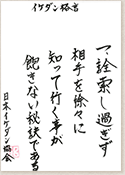 イケダン格言
一、詮索し過ぎず
相手を徐々に
知って行く事が
飽きない秘訣である
日本イケダン協会